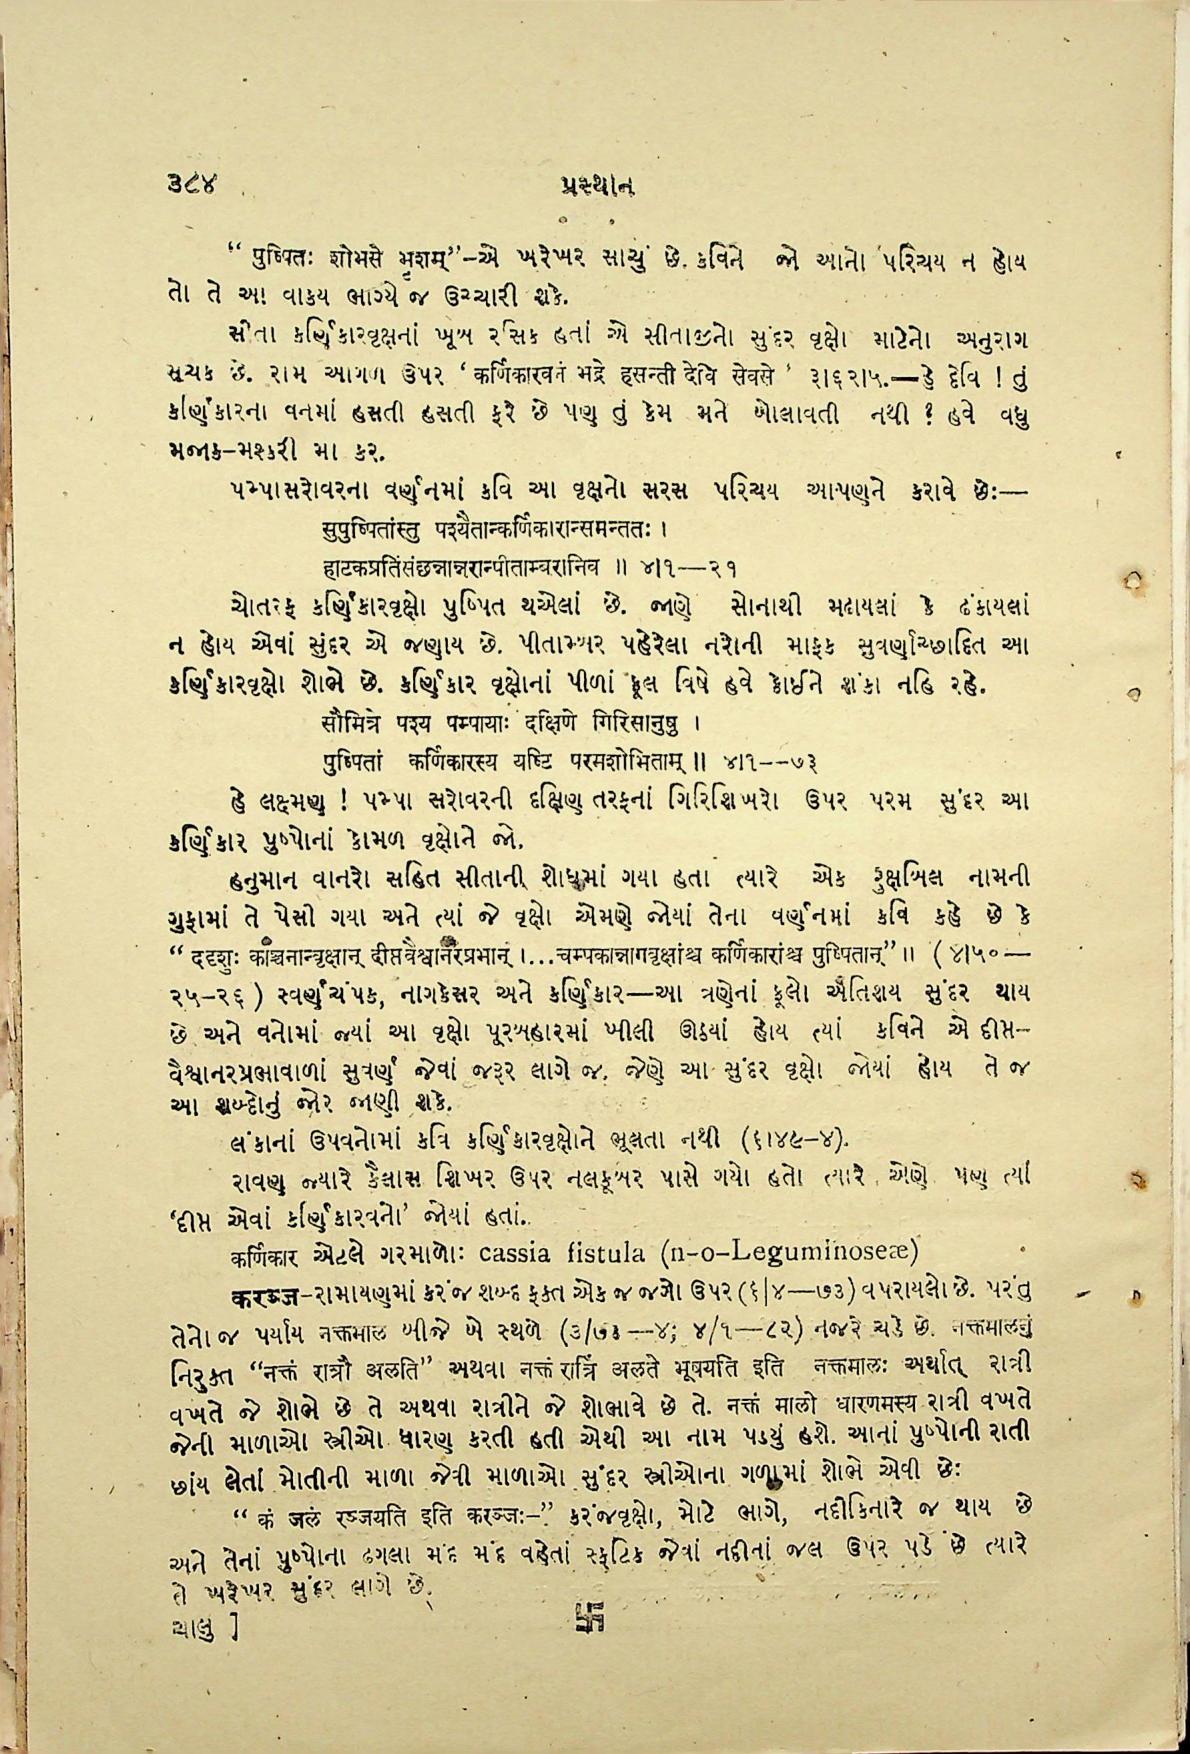 ૩૮૪
પ્રસ્થાન
“ पुष्पितः शोभसे भृशम्”–એ ખરેખર સાચું છે. કવિને જો આનો પરિચય ન હોય
તો તે આ વાક્ય ભાગ્યે જ ઉચ્ચારી શકે.
સીતા કર્ણિકારવૃક્ષનાં ખૂબ રસિક હતાં એ સીતાજીનો સુંદર વૃક્ષો માટેનો અનુરાગ
સૂચક છે. રામ આગળ ઉપર ‘ कर्णिकारवनं भद्रे हसन्ती देवि सेवसे ’ ૩।૬૨।૫.—હે દેવિ ! તું
કર્ણિકારના વનમાં હસતી હસતી ફરે છે પણ તું કેમ મને બોલાવતી નથી ? હવે વધુ
મજાક–મશ્કરી મા કર.
પમ્પાસરોવરના વર્ણનમાં કવિ આ વૃક્ષનો સરસ પરિચય આપણને કરાવે છેઃ—
सुपुष्पितांस्तु पश्यैतान्कर्णिकारान्समन्ततः ।
हाटकप्रतिसंछन्नान्नरान्पीताम्बरानिव ॥ ૪।૧—૨૧
ચોતરફ કર્ણિકારવૃક્ષો પુષ્પિત થએલાં છે. જાણે સોનાથી મઢાયલાં કે ઢંકાયલાં
ન હોય એવાં સુંદર એ જણાય છે. પીતામ્બર પહેરેલા નરોની માફક સુવર્ણાચ્છાદિત આ
કર્ણિકારવૃક્ષો શોભે છે. કર્ણિકાર વૃક્ષોનાં પીળાં ફૂલ વિષે હવે કોઈને શંકા નહિ રહે.
सौमित्रे पश्य पम्पायाः दक्षिणे गिरिसानुषु ।
पुष्पितां कर्णिकारस्य यष्टिं परमशोभिताम् ॥ ૪।૧--૭૩
હે લક્ષ્મણ ! પમ્પા સરોવરની દક્ષિણ તરફનાં ગિરિશિખરો ઉપર પરમ સુંદર આ
કર્ણિકાર પુષ્પોનાં કોમળ વૃક્ષોને જો.
હનુમાન વાનરો સહિત સીતાની શોધમાં ગયા હતા ત્યારે એક રુક્ષબિલ નામની
ગુફામાં તે પેસી ગયા અને ત્યાં જે વૃક્ષો એમણે જોયાં તેના વર્ણનમાં કવિ કહે છે કે
“ ददृशुः काञ्चनान्वृक्षान् दीप्तवैश्वानरप्रभान् ।...चम्पकान्नागवृक्षांश्च कर्णिकारांश्च पुष्पितान्”॥ ( ૪।૫૦—
૨૫–૨૬ ) સ્વર્ણચંપક, નાગકેસર અને કર્ણિકાર—આ ત્રણેનાં ફૂલો અતિશય સુંદર થાય
છે અને વનોમાં જ્યાં આ વૃક્ષો પૂરબહારમાં ખીલી ઊઠયાં હોય ત્યાં કવિને એ દીપ્ત–
વૈશ્વાનરપ્રભાવાળાં સુવર્ણ જેવાં જરૂર લાગે જ. જેણે આ સુંદર વૃક્ષો જોયાં હોય તે જ
આ શબ્દોનું જોર જાણી શકે.
લંકાનાં ઉપવનોમાં કવિ કર્ણિકારવૃક્ષોને ભૂલતા નથી (૬।૪૯–૪).
રાવણ જ્યારે કૈલાસ શિખર ઉપર નલકૂબર પાસે ગયો હતો ત્યારે એણે પણ ત્યાં
‘દીપ્ત એવાં કર્ણિકારવનો’ જોયાં હતાં.
कर्णिकार એટલે ગરમાળોઃ cassia fistula (n-o-Leguminoseæ)
करञ्ज–રામાયણમાં કરંજ શબ્દ ફક્ત એક જ જગો ઉપર (૬/૪—૭૩) વપરાયલો છે. પરંતુ
તેનો જ પર્યાય નક્તમાલ બીજે બે સ્થળે (૩/૭૩—૪; ૪/૧—૮૨) નજરે ચડે છે. નક્તમાલનું
નિરુક્ત “नक्तं रात्रौ अलति” અથવા नक्तं रात्रिं अलते भूषयति इति नक्तमालः અર્થાત્ રાત્રી
વખતે જે શોભે છે તે અથવા રાત્રીને જે શોભાવે છે તે. नक्तं मालो धारणमस्य રાત્રી વખતે
જેની માળાઓ સ્ત્રીઓ ધારણ કરતી હતી એથી આ નામ પડયું હશે. આનાં પુષ્પોની રાતી
છાંય લેતાં મોતીની માળા જેવી માળાઓ સુંદર સ્ત્રીઓના ગળામાં શોભે એવી છેઃ
“ कं जलं रञ्जयति इति करञ्जः–” કરંજવૃક્ષો, મોટે ભાગે, નદીકિનારે જ થાય છે
અને તેનાં પુષ્પોના ઢગલા મંદ મંદ વહેતાં સ્ફટિક જેવાં નદીનાં જલ ઉપર પડે છે ત્યારે
તે ખરેખર સુંદર લાગે છે.
ચાલુ ]